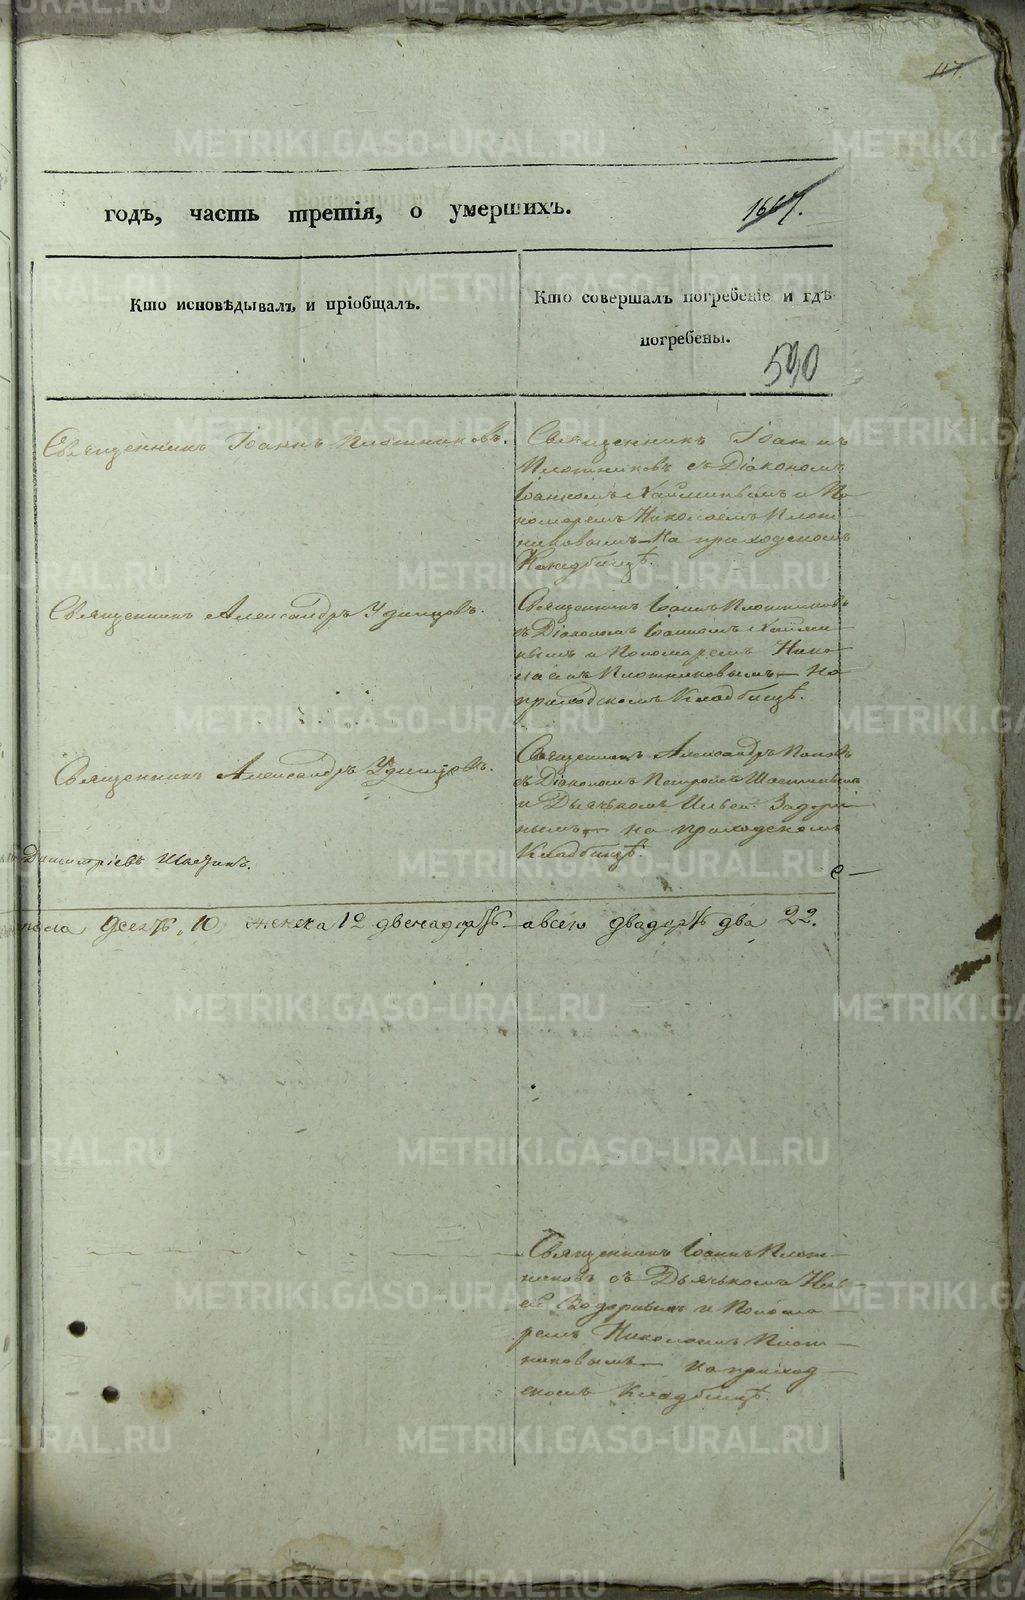 117.
годъ, часть третія, о умершихъ.
1667.
Кто исповѣдывалъ и пріобщалъ.
Кто совершалъ погребеніе и гдѣ
погребены.
590
Священникъ Іоаннъ Плотниковъ.
Священникъ Іоаннъ
Плотниковъ съ Діакономъ
Іоанномъ и По
номаремъ Николаемъ Плот
никовымъ – На приходскомъ
Кладбищѣ.
Священникъ Александръ Удинцовъ.
Священникъ Іоаннъ Плотниковъ
съ Діакономъ Іоанномъ
и Пономаремъ Нико
лаемъ Плотниковымъ – на
приходскомъ Кладбищѣ.
Священникъ Александръ Удинцовъ.
Священникъ Александръ Поповъ
съ Діакономъ Петромъ
и Дьячкомъ Ильей Задори
нымъ – на приходскомъ
Кладбищѣ.
Димитріевъ
пола десять 10, женска 12 двенадцать а всего двадцать два 22.
Священникъ Іоаннъ Плот
никовъ съ Дьячкомъ Иль
ей Задоринымъ и Понома
ремъ Николаемъ Плот
никовымъ – на приход
скомъ Кладбищѣ.
METRIKI.GASO-URAL.RU